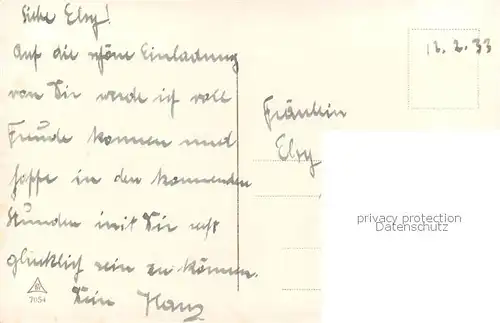 Liebe Elsy!
Auf die schöne Einladung
von Dir werde ich voll
Freude kommen und
hoffe in den kommenden
Stunden mit Dir recht
glücklich sein zu können.
Dein Hans
12.2.33
Fräulein
Elsy
privacy protection
Datenschutz
7054